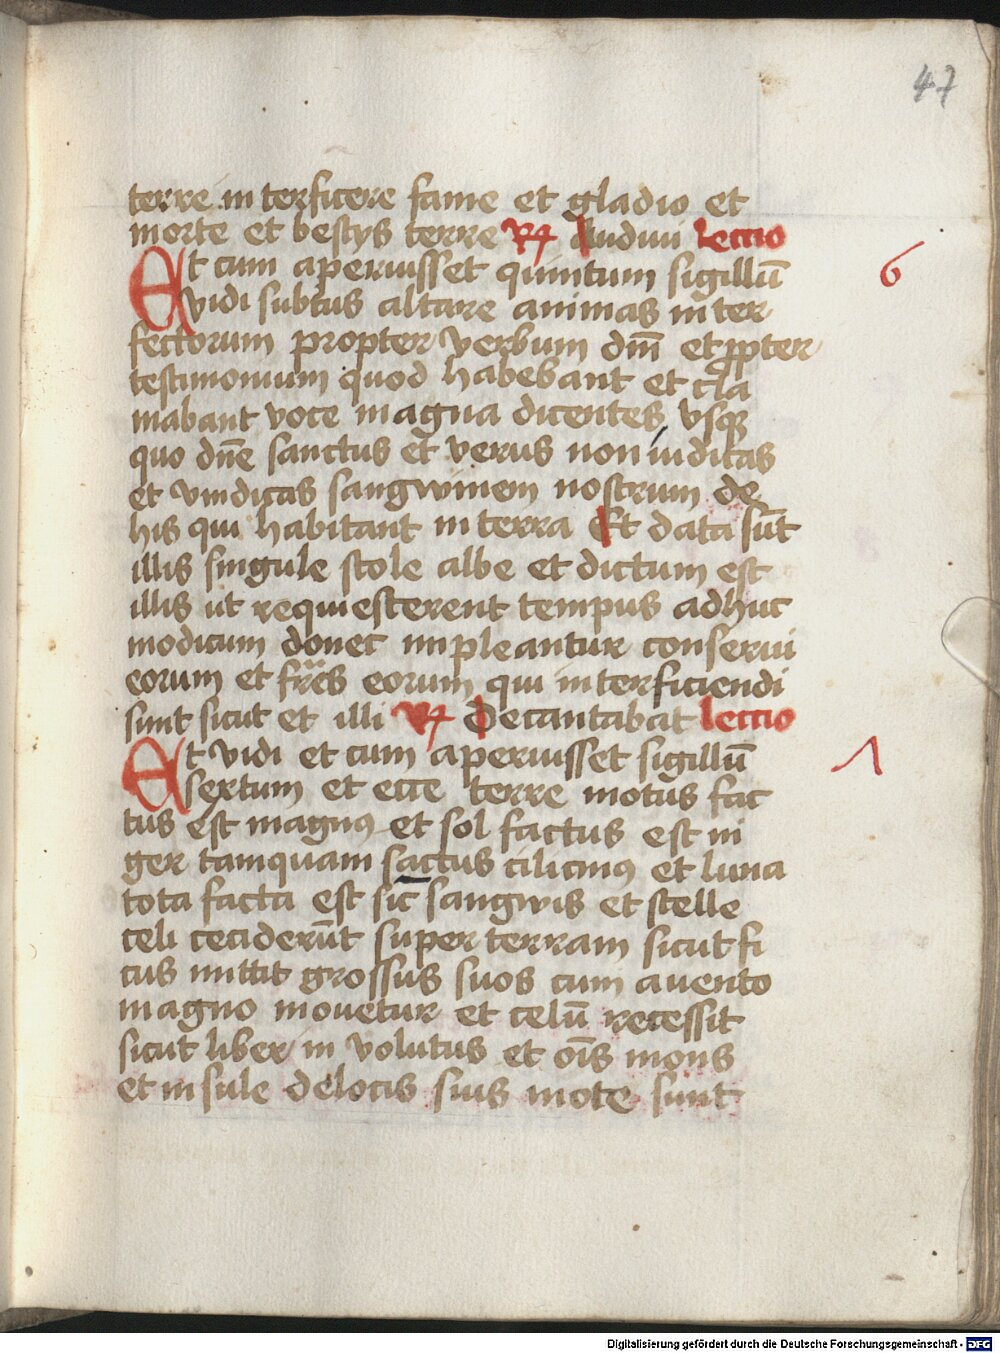 47
terre in terficere fame et gladio et
morte et bestys terre R Audiui lectio
Et cum aperiusset quintum sigillū 6
vidi subtus altare animas inter
fectorum propter verbum dm̄ et ꝓpter
testimonium quod habebant et cla
mabant voce magna dicentes vsq
quo dn̄e sanctus et verus non iudicas
et vindicas sangwinem nostrum de
his qui habitant in terra Et data sūt
illis singule stole albe et dictum est
illis ut requiescerent tempus adhuc
modicum donec impleantur conserui
eorum et fr̄es eorum qui interficiendi
sunt sicut et illi R Decantabat lectio
Et vidi et cum aperiusset sigillū 7
sextum et ecce terre motus fac
tus est magnꝯ et sol factus est ni
ger tamquam sactus cilicinꝯ et luna
tota facta est sic̄ sangwis et stelle
celi ceciderūt super terram sicut fi
cus mittit grossus suos cum a uento
magno mouetur et celū recessit
sicut liber in volutus et oīs mons
et insule de locis suis mote sunt
Digitalisierung gefördert durch die Deutsche Forschungsgemeinschaft - DFG